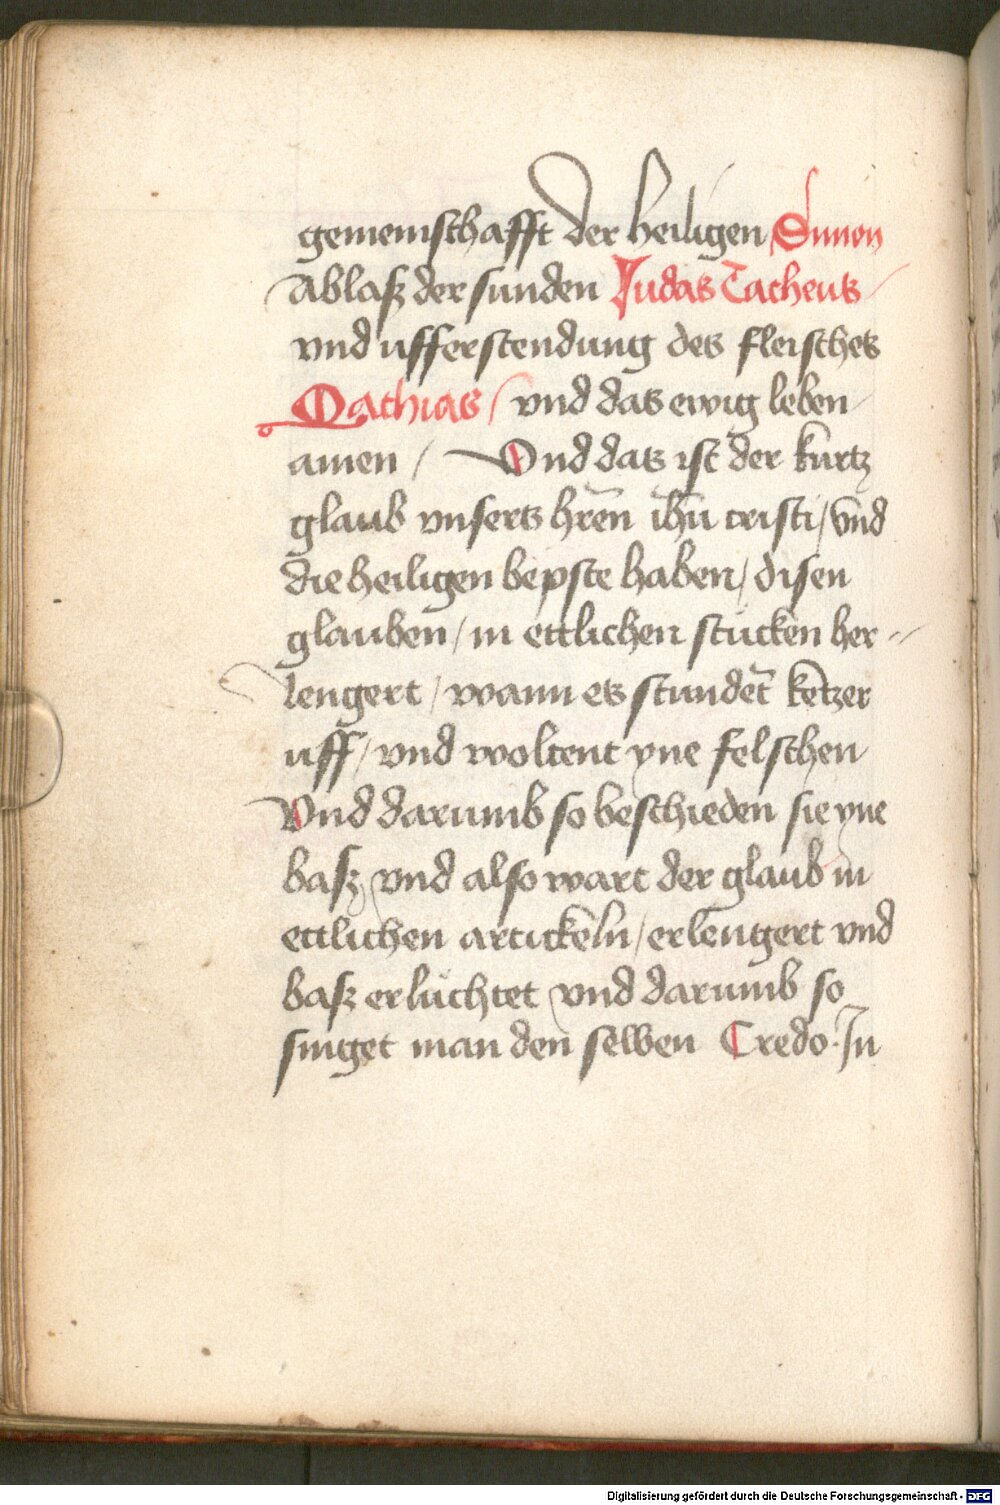 gemeinschafft der heiligen Simon
Ablasz der sunden Judas Tacheus
vnd ufferstendung des fleisches
Mathias / vnd das ewig leben
amen / Vnd das ist der kurtz
glaub vnsers hr̄en ih̄u cristi / vnd
die heiligen bepste haben / disen
glauben / in ettlichen stücken ver-
lengert / wann es stundēt ketzer
uff / vnd woltent yne felschen
Vnd darumb so beschieden sie yne
basz / vnd also wart der glaub in
ettlichen artickeln / erlengert vnd
basz erlüchtet vnd darumb so
singet man den selben Credo. In
Digitalisierung gefördert durch die Deutsche Forschungsgemeinschaft - DFG